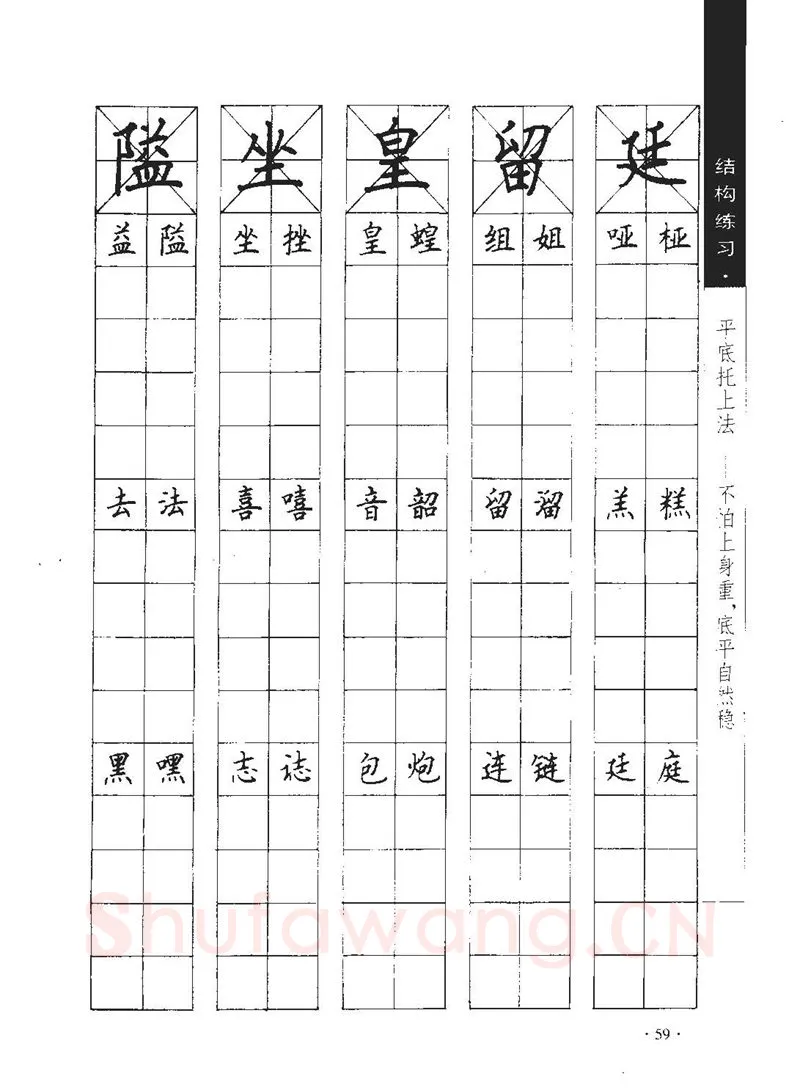 隘 坐 皇 留 廷
益 隘 坐 挫 皇 蝗 组 姐 哑 桠
去 法 喜 嘻 音 韶 留 溜 羔 糕
黑 嘿 志 誌 包 炮 连 链 廷 庭
结构练习·
平底托上法——不怕上身重，底平自然稳
Shufawang.CN
·59·